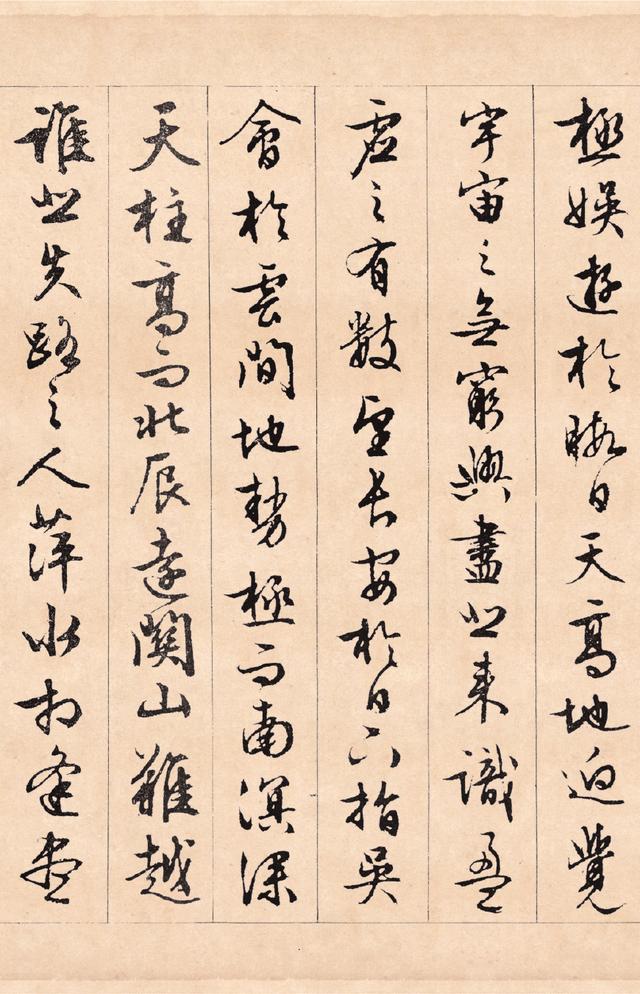 極娛遊於暇日天高地迥覺
宇宙之無窮興盡悲来識盈
虛之有數望長安於日下指吳
會於雲間地勢極而南溟深
天柱高而北辰遠關山難越
誰悲失路之人萍水相逢盡